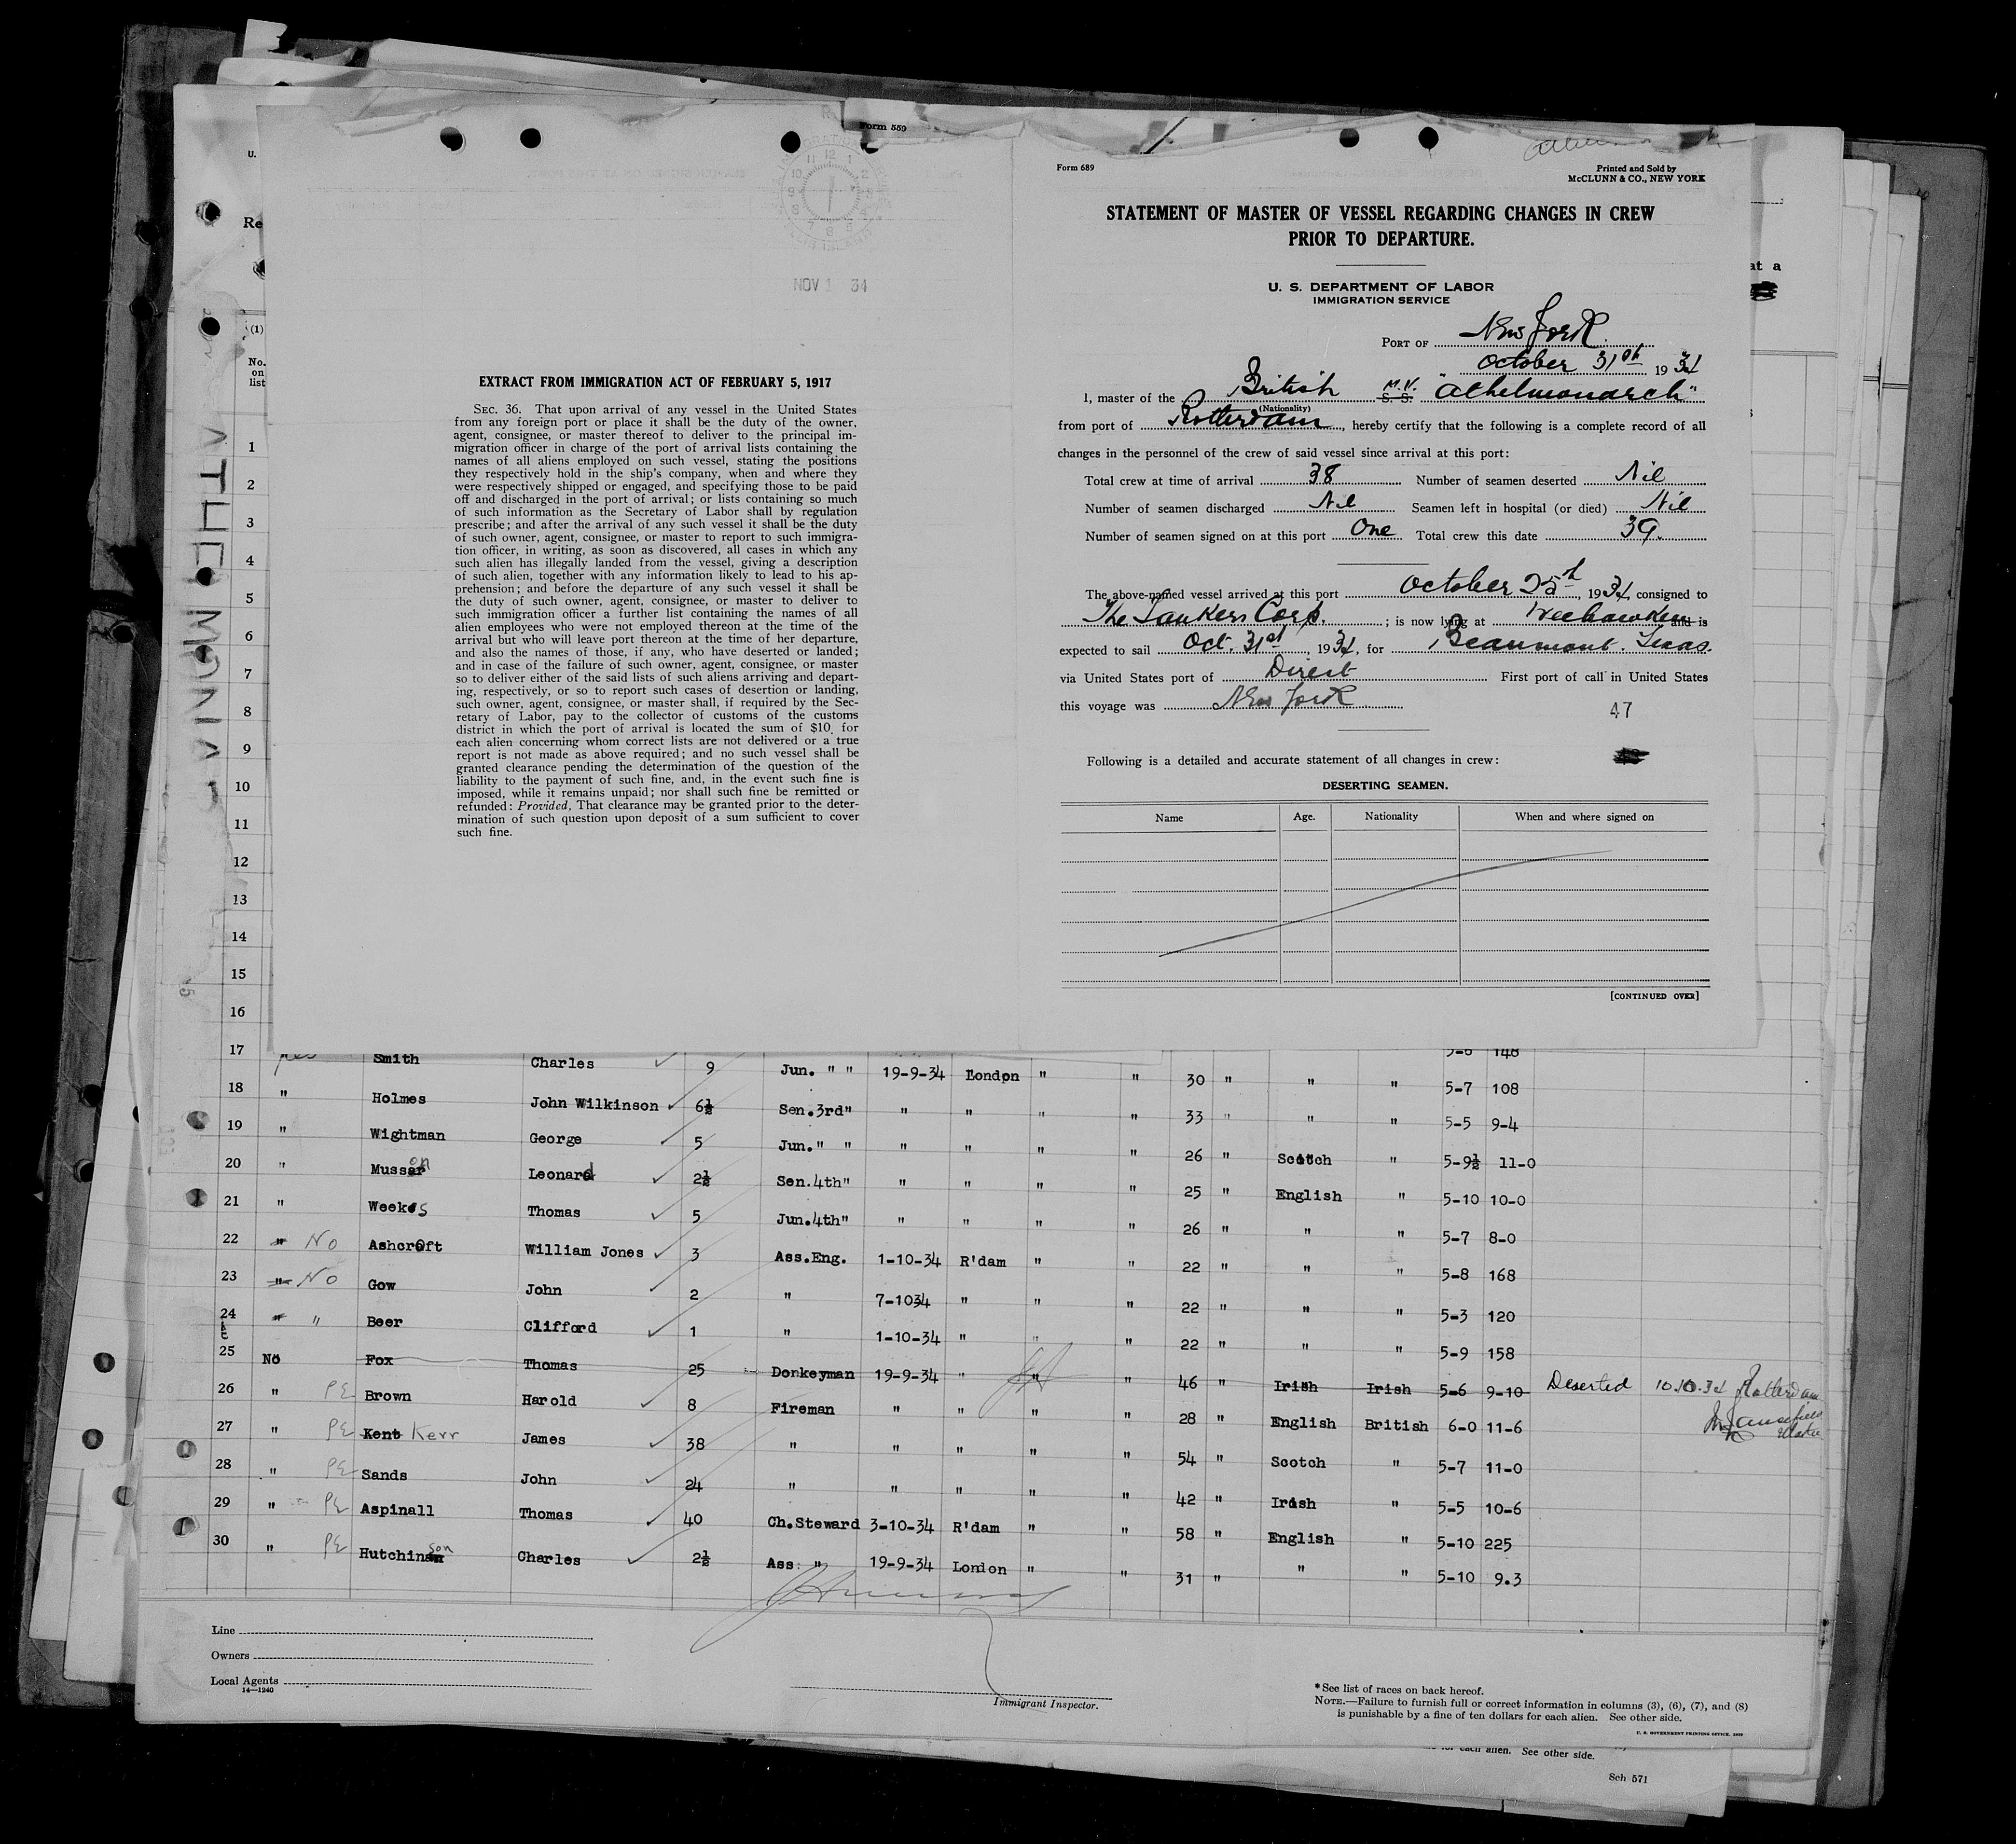 Form 559
NOV 1 34
EXTRACT FROM IMMIGRATION ACT OF FEBRUARY 5, 1917
SEC. 36. That upon arrival of any vessel in the United States
from any foreign port or place it shall be the duty of the owner,
agent, consignee, or master thereof to deliver to the principal im-
migration officer in charge of the port of arrival lists containing the
names of all aliens employed on such vessel, stating the positions
they respectively hold in the ship's company, when and where they
were respectively shipped or engaged, and specifying those to be paid
off and discharged in the port of arrival; or lists containing so much
of such information as the Secretary of Labor shall by regulation
prescribe; and after the arrival of any such vessel it shall be the duty
of such owner, agent, consignee, or master to report to such immigra-
tion officer, in writing, as soon as discovered, all cases in which any
such alien has illegally landed from the vessel, giving a description
of such alien, together with any information likely to lead to his ap-
prehension; and before the departure of any such vessel it shall be
the duty of such owner, agent, consignee, or master to deliver to
such immigration officer a further list containing the names of all
alien employees who were not employed thereon at the time of the
arrival but who will leave port thereon at the time of her departure,
and also the names of those, if any, who have deserted or landed;
and in case of the failure of such owner, agent, consignee, or master
so to deliver either of the said lists of such aliens arriving and depart-
ing, respectively, or so to report such cases of desertion or landing,
such owner, agent, consignee, or master shall, if required by the Sec-
retary of Labor, pay to the collector of customs of the customs
district in which the port of arrival is located the sum of $10 for
each alien concerning whom correct lists are not delivered or a true
report is not made as above required; and no such vessel shall be
granted clearance pending the determination of the question of the
liability to the payment of such fine, and, in the event such fine is
imposed, while it remains unpaid; nor shall such fine be remitted or
refunded: Provided, That clearance may be granted prior to the deter-
mination of such question upon deposit of a sum sufficient to cover
such fine.
Form 689
Printed and Sold by
McCLUNN & CO., NEW YORK
STATEMENT OF MASTER OF VESSEL REGARDING CHANGES IN CREW
PRIOR TO DEPARTURE.
U. S. DEPARTMENT OF LABOR
IMMIGRATION SERVICE
PORT OF New York.
October 31st 1934
I, master of the British M.V. S.S. "Athelmonarch"
(Nationality)
from port of Rotterdam, hereby certify that the following is a complete record of all
changes in the personnel of the crew of said vessel since arrival at this port:
Total crew at time of arrival 38 Number of seamen deserted Nil
Number of seamen discharged Nil Seamen left in hospital (or died) Nil
Number of seamen signed on at this port One Total crew this date 39.
The above-named vessel arrived at this port October 25th, 1934, consigned to
The Tankers Corp. ; is now lying at Weehawken and is
expected to sail Oct. 31st, 1934, for Beaumont. Texas.
via United States port of Direct First port of call in United States
this voyage was New York
47
Following is a detailed and accurate statement of all changes in crew:
DESERTING SEAMEN.
Name Age. Nationality When and where signed on
[CONTINUED OVER]
U.
Re
at a
(1)
No.
on
list
1
2
3
4
5
6
7
8
9
10
11
12
13
14
15
16
5-6 148
17 Smith Charles 9 Jun. " " 19-9-34 London " " 30 " " " 5-7 108
18 " Holmes John Wilkinson 6½ Sen.3rd" " " " " 33 " " " 5-5 9-4
19 " Wightman George 5 Jun." " " " " " 26 " Scotch " 5-9½ 11-0
20 " Musson Leonard 2½ Sen.4th" " " " " 25 " English " 5-10 10-0
21 " Weekes Thomas 5 Jun.4th" " " " " 26 " " " 5-7 8-0
22 " No Ashcroft William Jones 3 Ass.Eng. 1-10-34 R'dam " " 22 " " " 5-8 168
23 " No Gow John 2 " 7-1034 " " " 22 " " " 5-3 120
24 " " Beer Clifford 1 " 1-10-34 " " " 22 " " " 5-9 158
25 No Fox Thomas 25 Donkeyman 19-9-34 " " " 46 " Irish Irish 5-6 9-10 Deserted 10.10.34 Rotterdam
26 " PE Brown Harold 8 Fireman " " " " 28 " English British 6-0 11-6
27 " PE Kent Kerr James 38 " " " " " 54 " Scotch " 5-7 11-0
28 " PE Sands John 24 " " " " " 42 " Irish " 5-5 10-6
29 " PE Aspinall Thomas 40 Ch.Steward 3-10-34 R'dam " " 58 " English " 5-10 225
30 " PE Hutchinson Charles 2½ Ass. " 19-9-34 London " " 31 " " " 5-10 9.3
Line
Owners
Local Agents
14—1240
Immigrant Inspector.
*See list of races on back hereof.
NOTE.—Failure to furnish full or correct information in columns (3), (6), (7), and (8)
is punishable by a fine of ten dollars for each alien. See other side.
U. S. GOVERNMENT PRINTING OFFICE
for each alien. See other side.
Sch 571